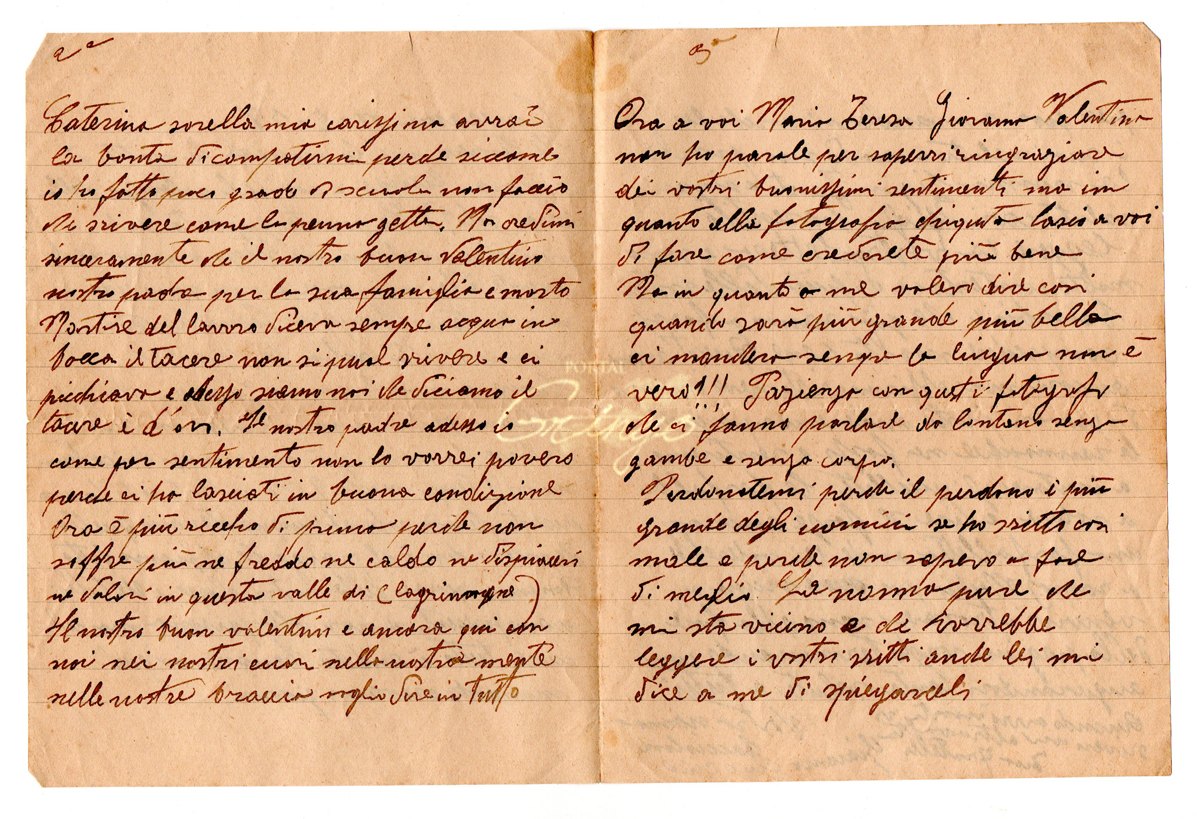 2ª
Caterina sorella mia carissima avrai
la bonta di compatirmi perche siccome
io ho fatto poco grado di scuola non faccio
che srivere come la penna getta. Ma credimi
sinceramente che il nostro buon Valentino
nostro padre per la sua famiglia e morto
Martire del lavoro diceva sempre acqua in
bocca il tacere non si puol vivere e ci
picchiava e adesso siamo noi che diciamo il
tacere è d'oro. Il nostro padre adesso io
come per sentimento non lo vorrei povero
perche ci ha lasciati in buona condizione
Ora è più riccho di prima perche non
soffre più ne freddo ne caldo ne dispiaceri
ne dolori in questa valle di (lagrime)
Il nostro buon valentino e ancora qui con
noi nei nostri cuori nella nostra mente
nelle nostre braccia voglio dire in tutto
3ª
Ora a voi Maria Teresa Giovanna Valentina
non ho parole per sapervi ringraziare
dei vostri buonissimi sentimenti ma in
quanto alla fotografia lascio a voi
di fare come crederete più bene
Ma in quanto a me volevo dire cosi
quando sarà più grande più bella
ci mandera senza la lingua non è
vero!!! Pazienza con questi fotografi
che ci fanno parlare da lontano senza
gambe e senza corpo.
Perdonatemi perche il perdono è più
grande degli uomini se ho sritto cosi
male e perche non sapevo a fare
di meglio. La nonna pure che
mi sta vicino e che vorrebbe
leggere i vostri sritti anche lei mi
dice a me di spiegarceli
PORTAL